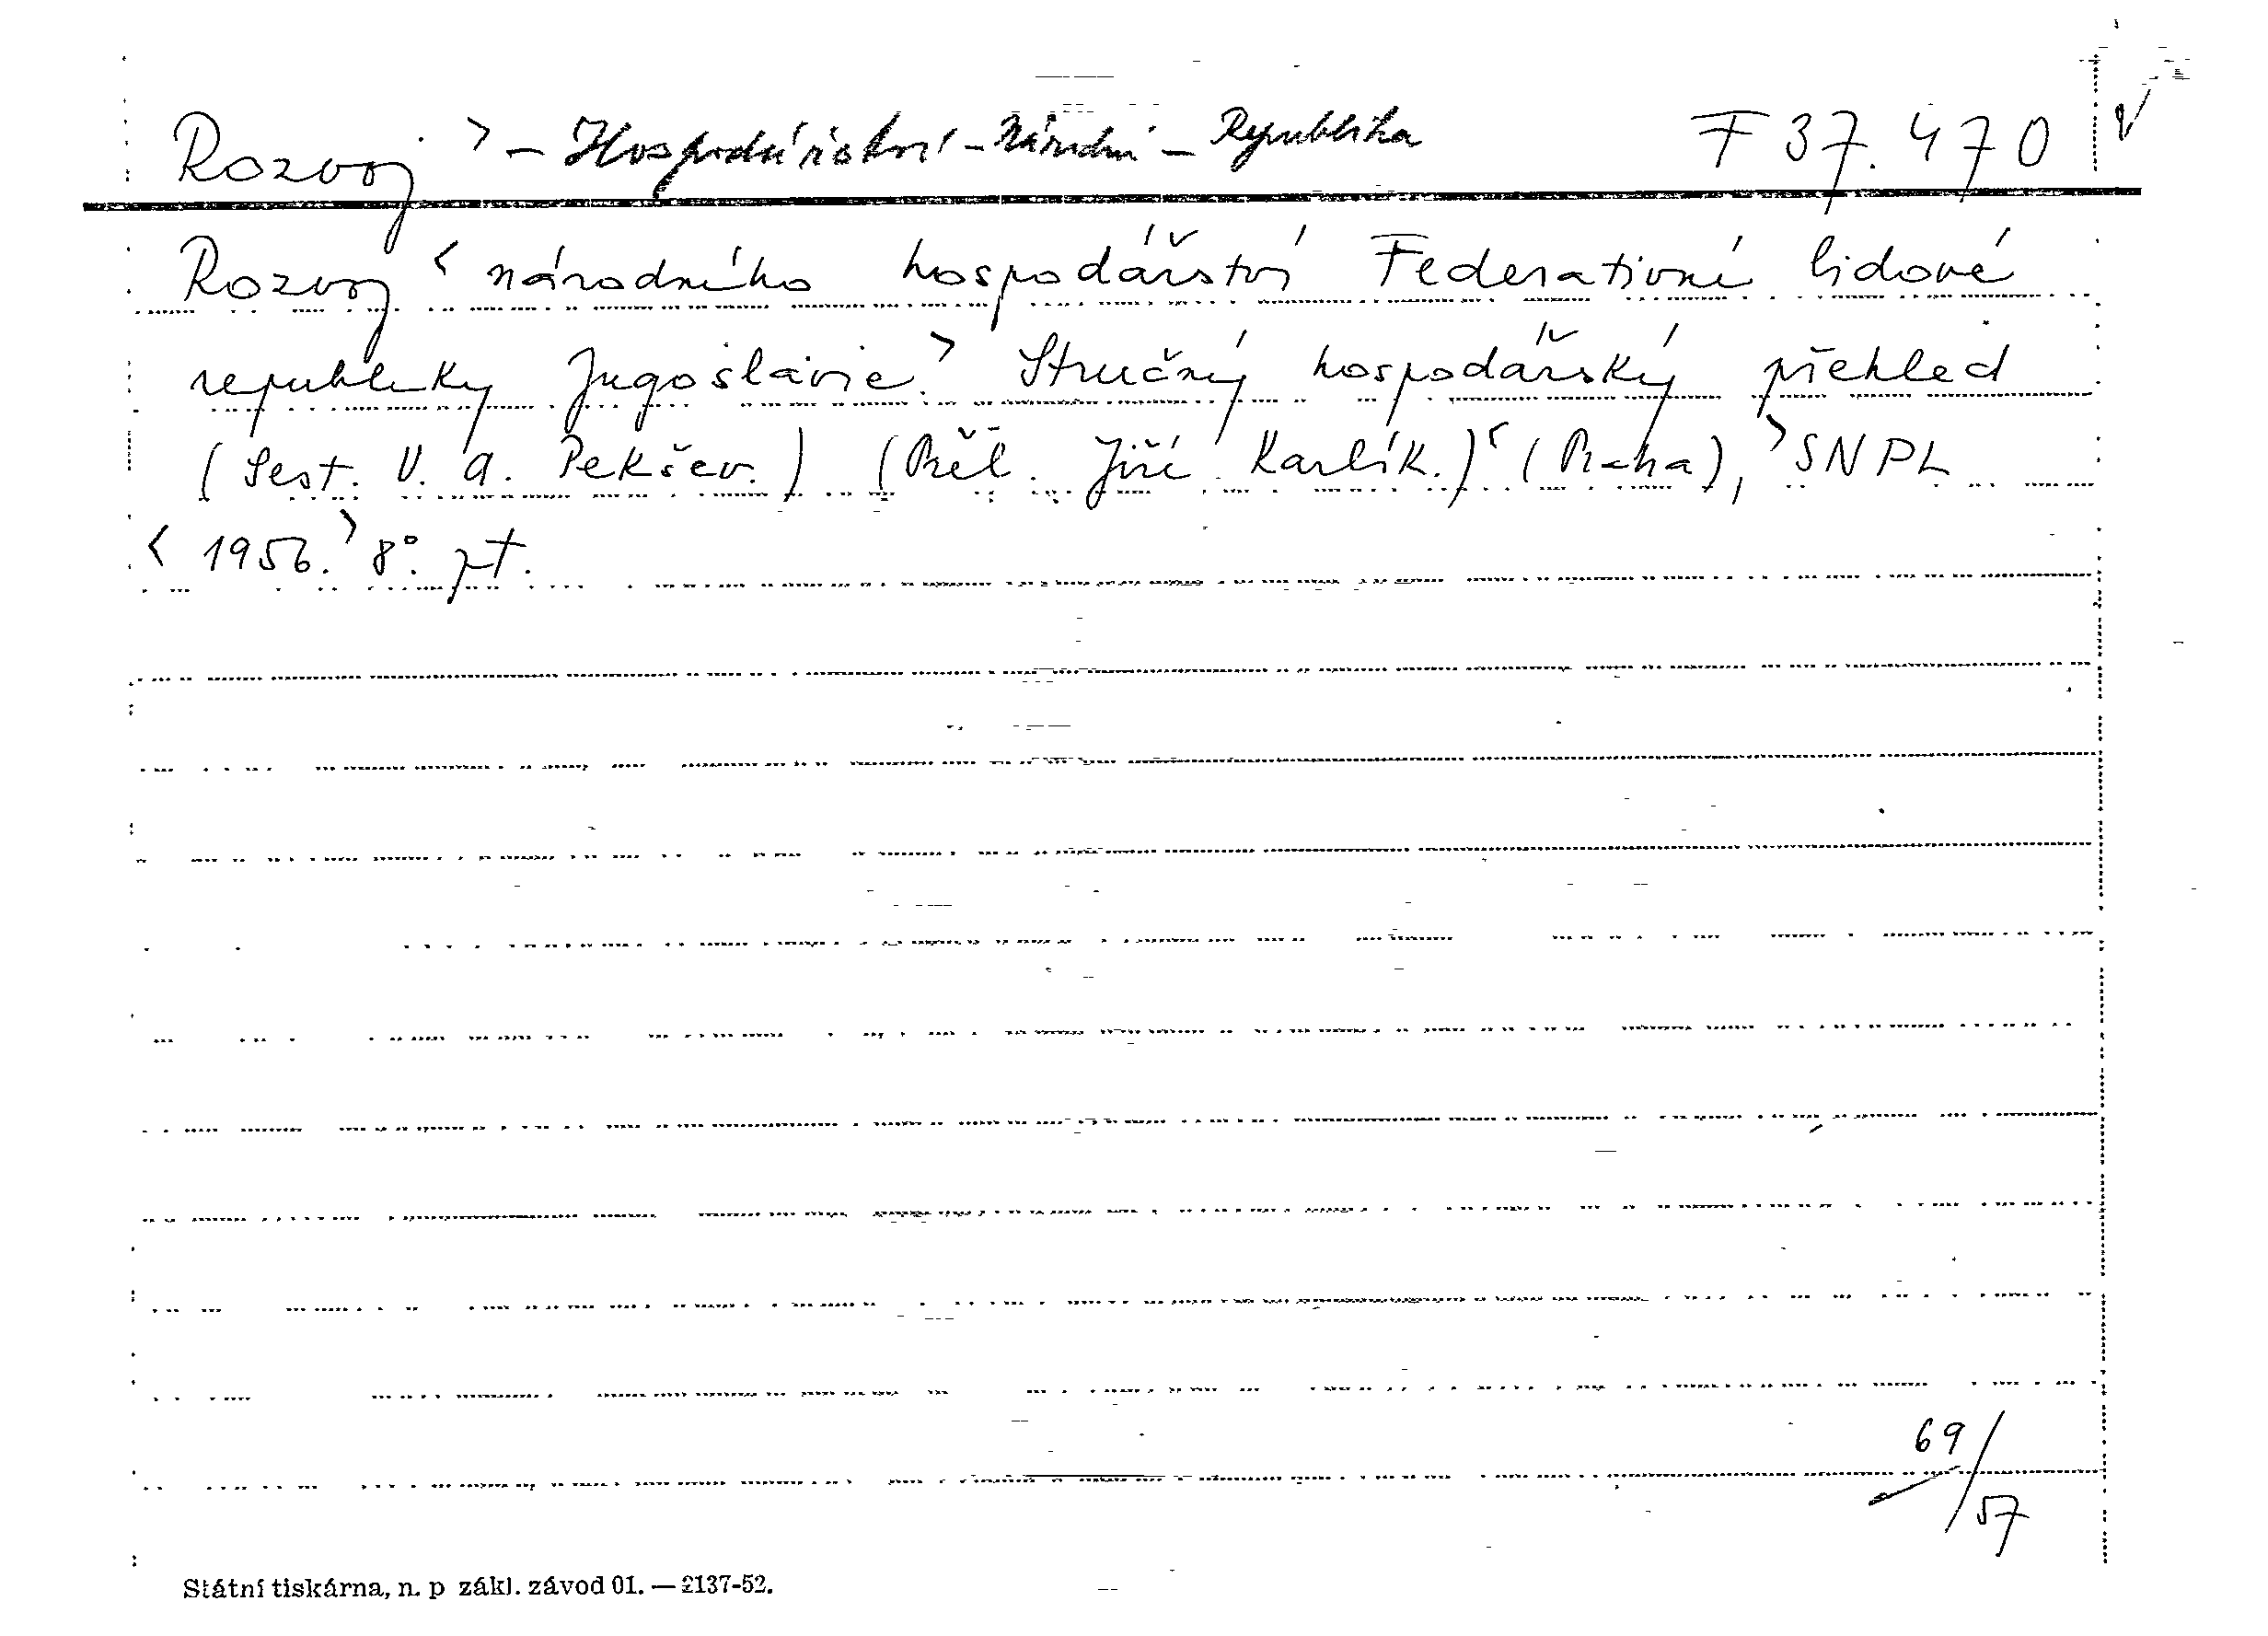 Rozvoj > – Hospodářství – Národní – Republika F 37.470 √
Rozvoj < národního hospodářství Federativní lidové
republiky Jugoslávie. > Stručný hospodářský přehled
(Sest. V. A. Pekšev.) (Přel. Jiří Karlík.) < (Praha), > SNPL
< 1956. > 8°. pt.
69/57
Státní tiskárna, n. p zákl. závod 01. — 2137-52.